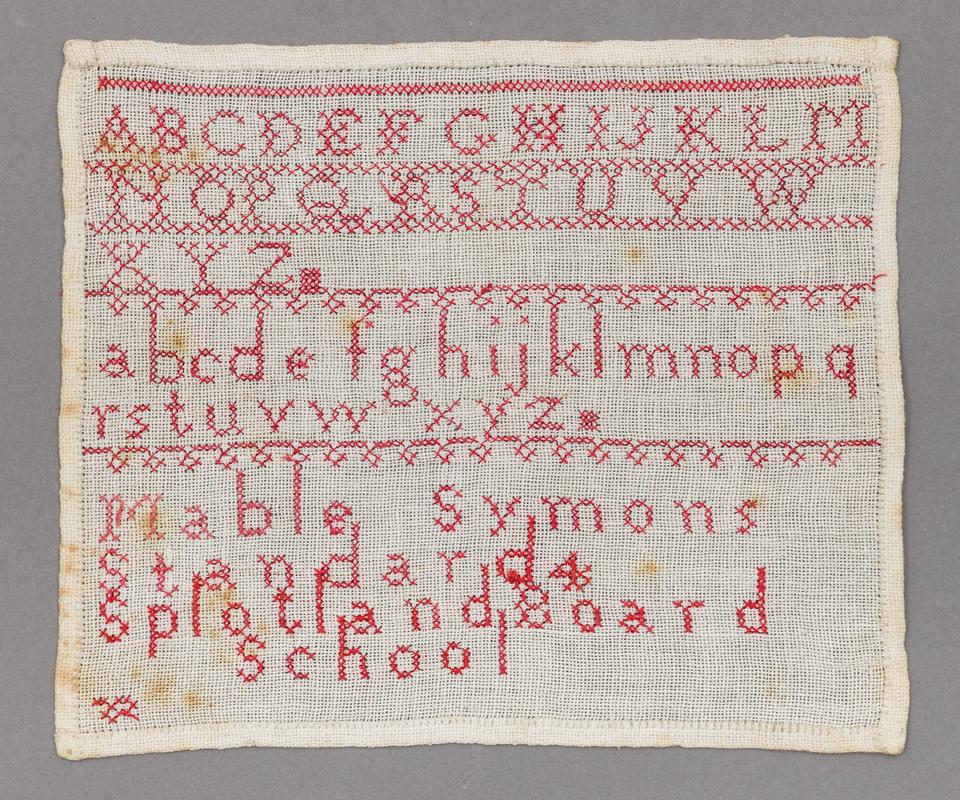 ABCDEFGHIJKLM
NOPQRSTUVW
XYZ.
abcdefghijklmnopq
rstuvwxyz.
Mable Symons
Standard 4
Splotland Board
School